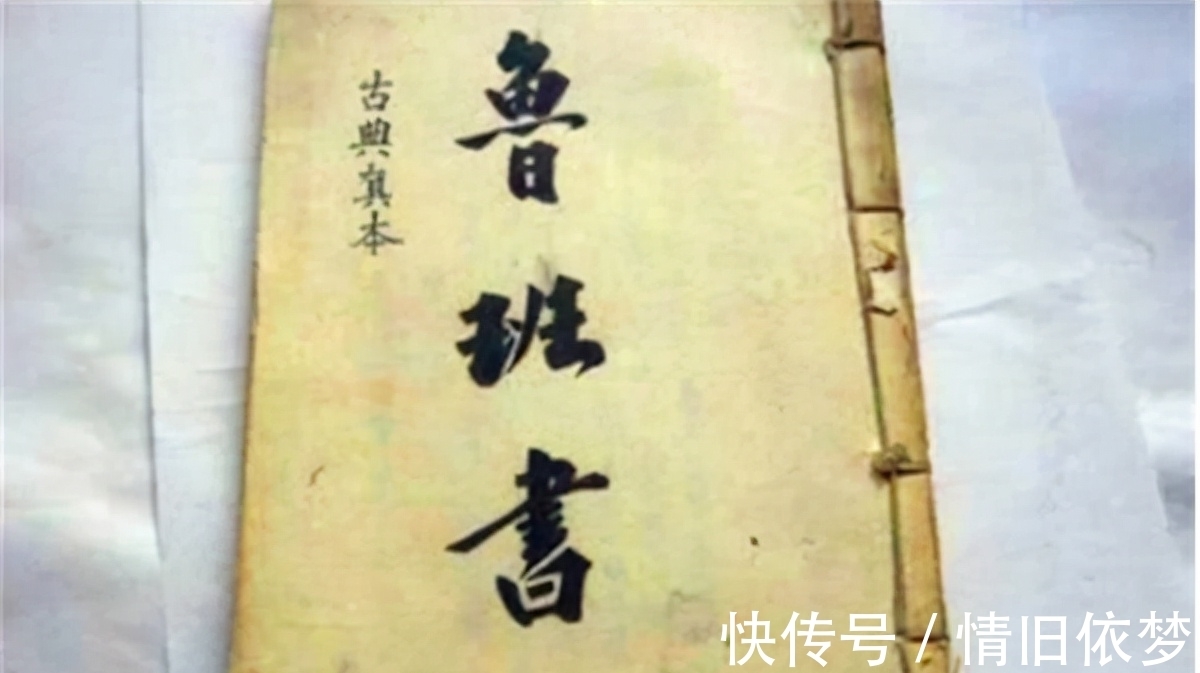 古典真本
魯班書
快传号 / 情旧依梦